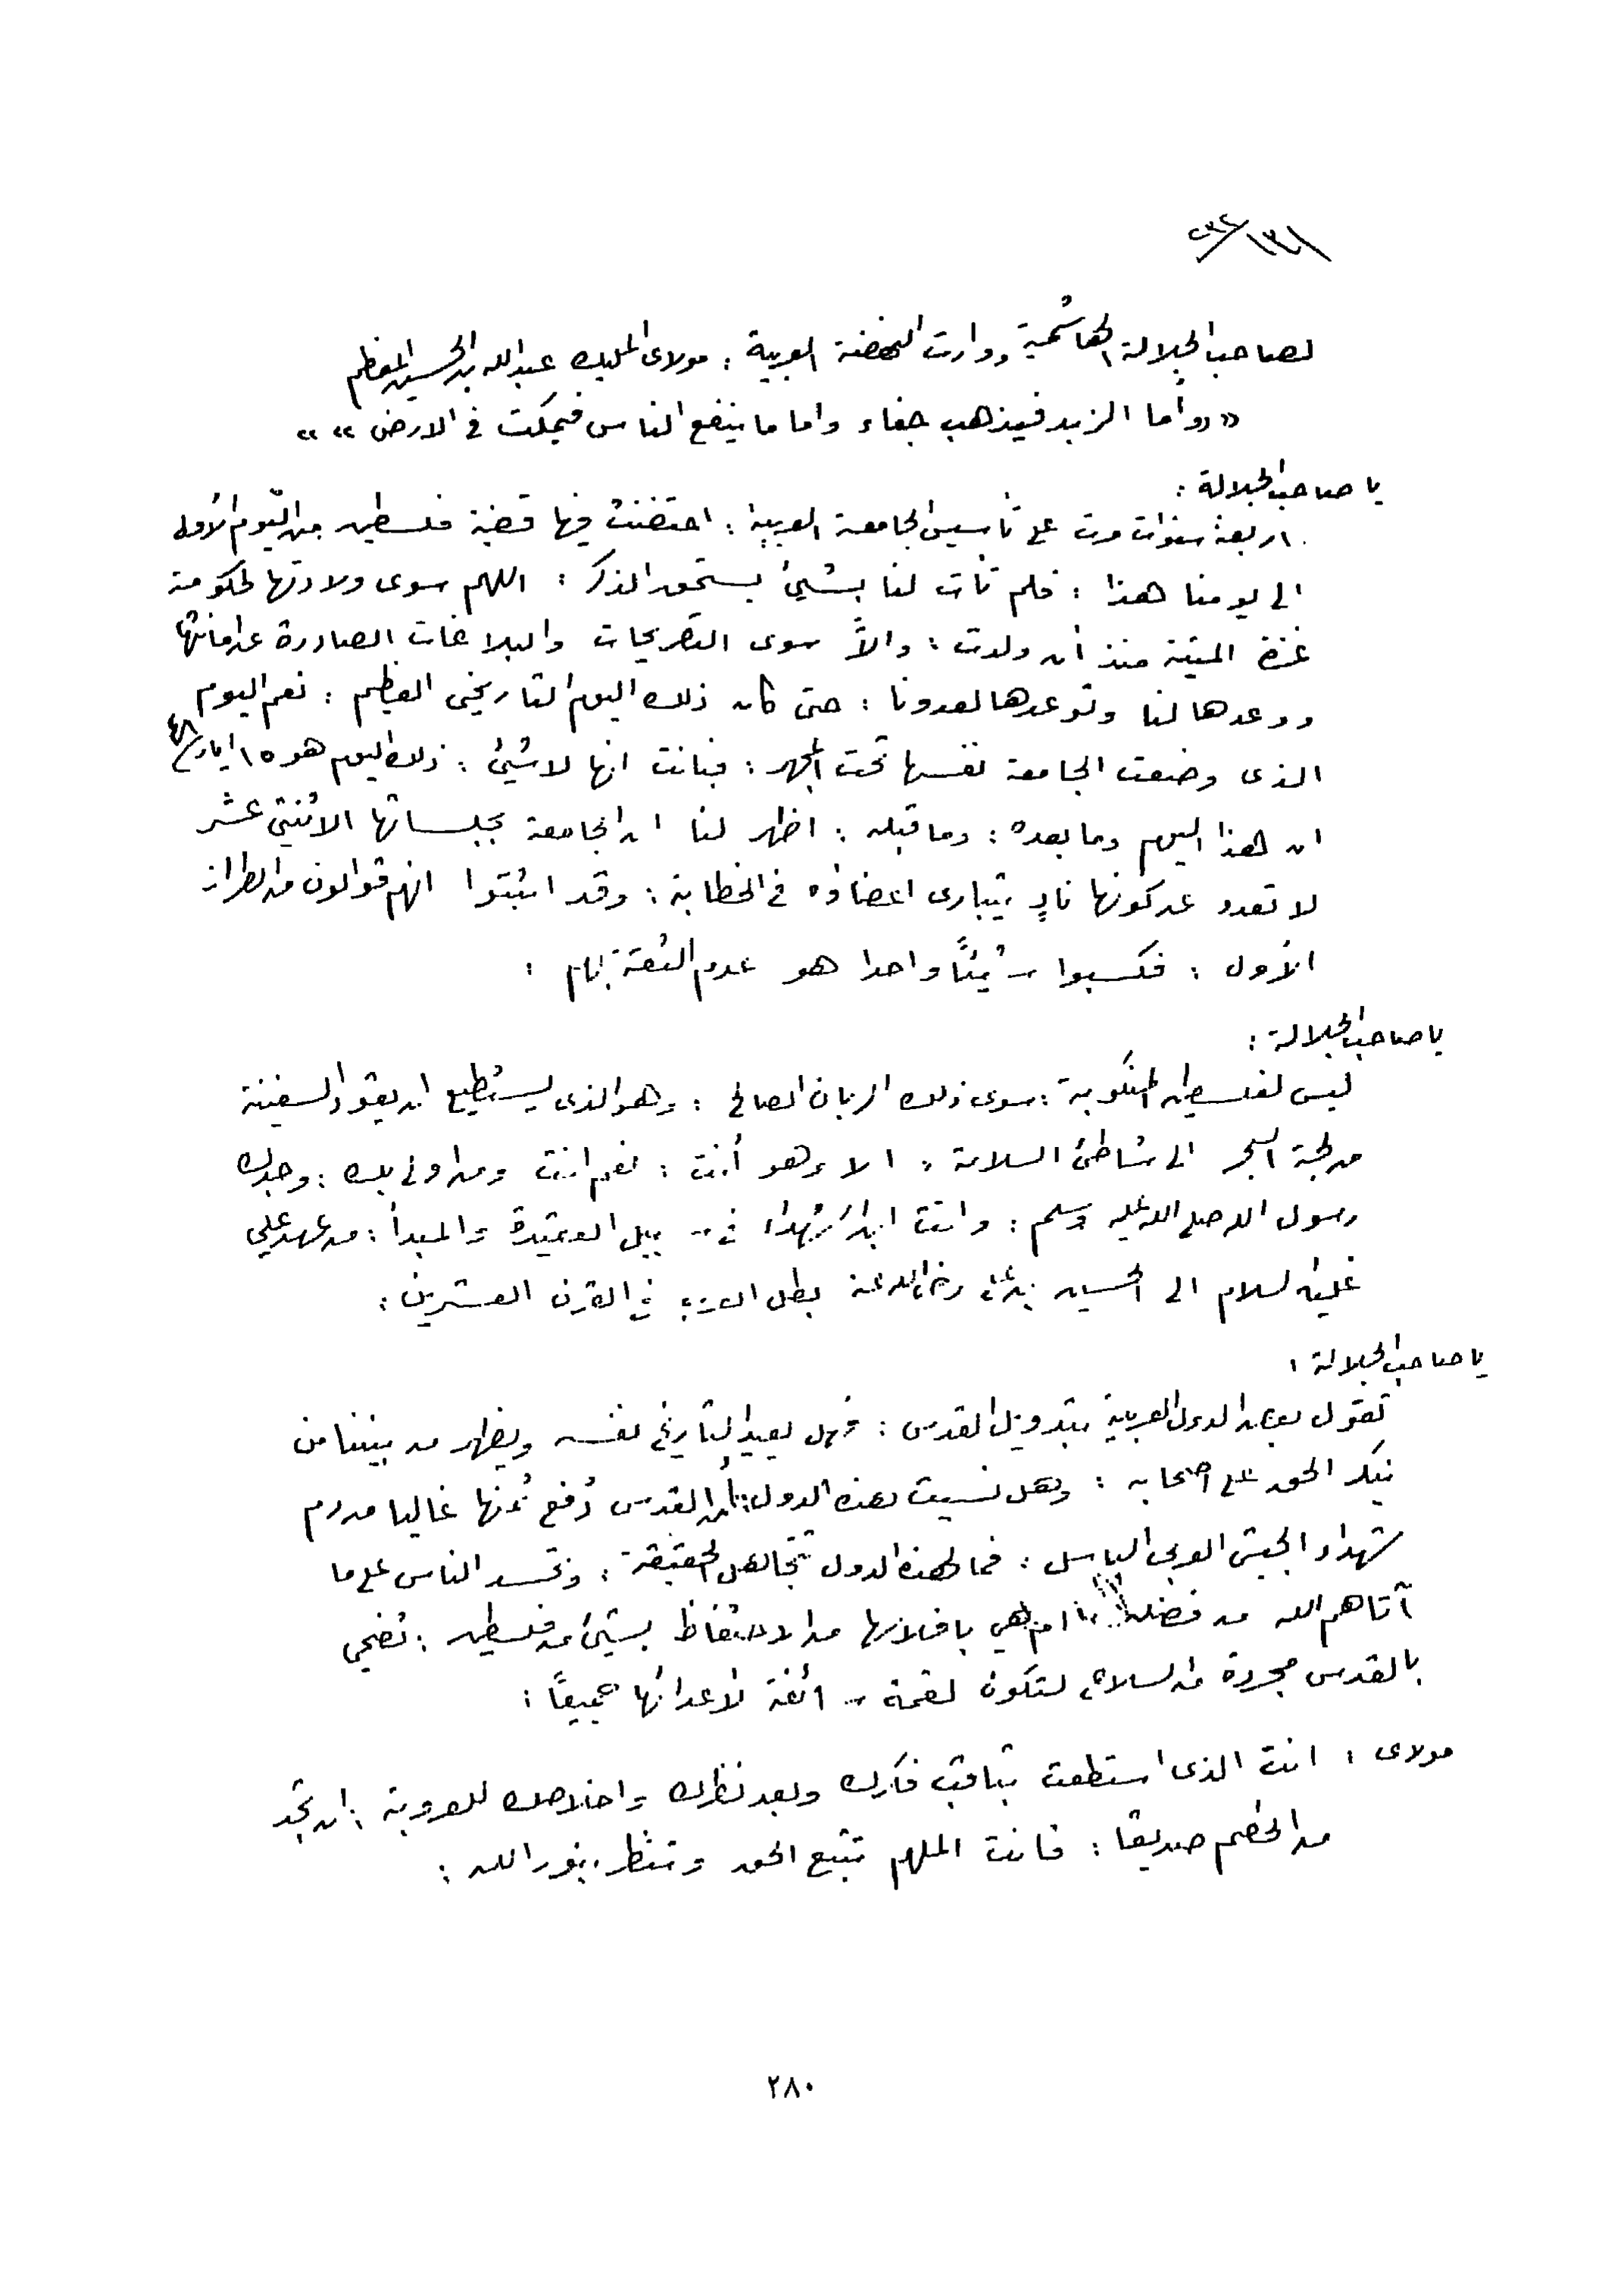 لصاحب الجلالة الهاشمية ووارث النهضة العربية : مولاى المليك عبدالله بن الحسين المعظم
« وأما الزبد فيذهب جفاء واما ما ينفع الناس فيمكث في الارض »
يا صاحب الجلالة :
اربعة سنوات مرت على تأسيس الجامعة العربية : احتضنت فيها قضية فلسطين من اليوم الأول
الى يومنا هذا : فلم تأت لنا بشيئ يستحق الذكر : اللهم سوى ولادتها لحكومة
غزة الميتة منذ أن ولدت : والاّ سوى التصريحات والبلاغات الصادرة عن امانتها
ووعدها لنا وتوعدها لعدونا : حتى كان ذلك اليوم التاريخى العظيم : نعم اليوم
الذى وضعت الجامعة نفسها تحت المجهر : فبانت انها لا شيئ : ذلك اليوم هو ١٥ ايار ٤٨
ان هذا اليوم وما بعده : وما قبله : اظهر لنا ان الجامعة بجلساتها الاثنتى عشر
لا تعدو عن كونها نادٍ يتبارى اعضاؤه في الخطابة : وقد اثبتوا انهم قوالون من الطراز
الأول : فكسبوا شيئاً واحدا هو عدم الثقة بهم :
يا صاحب الجلالة :
ليس لفلسطين المنكوبة : سوى ذلك الربان الصالح : وهو الذى يستطيع ان يقود السفينة
من لجة البحر الى شاطئ السلامة : الا وهو أنت : نعم انت ومن اولى بك : وجدك
رسول الله صلى الله عليه وسلم : وانت ابن الشهداء في سبيل العقيدة والمبدأ : من عهد علي
عليه السلام الى الحسين بن على رضى الله عنه بطل العرب في القرن العشرين :
يا صاحب الجلالة :
تقول بعض الدول العربية بتدويل القدس : فهل يعيد التاريخ نفسه ويظهر من بيننا من
ينكر الحق على اصحابه : وهل نسيت هذه الدول بأن القدس دفع ثمنها غاليا من دم
شهداء الجيش العربى الباسل : فما لهذه الدول تتجاهل الحقيقة : وتحسد الناس على ما
آتاهم الله من فضله ام هي بافلاسها من الاحتفاظ بشيئ من فلسطين : تضحي
بالقدس مجردة من السلاح لتكون لقمة سائغة لأعدائها جميعاً :
مولاى : انت الذى استطعت بثاقب فكرك وبعد نظرك واخلاصك للعروبة : ان تجد
من الخصم صديقا : فانت الملهم تتبع الحق وتنظر بنور الله :
٢٨٠